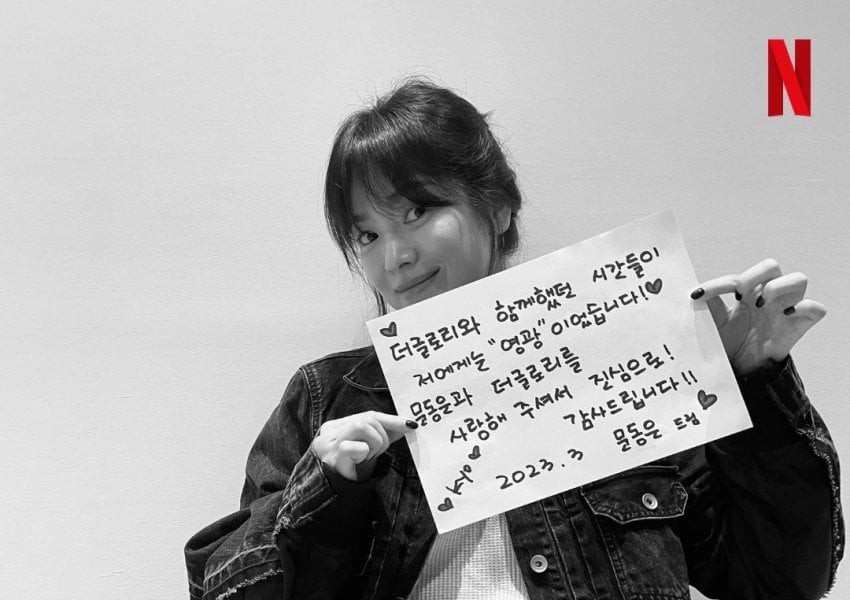 N
더글로리와 함께했던 시간들이
저에게는 "영광" 이었습니다!
문동은과 더글로리를
사랑해 주셔서 진심으로!
감사드립니다!!
2023.3 문동은 드림